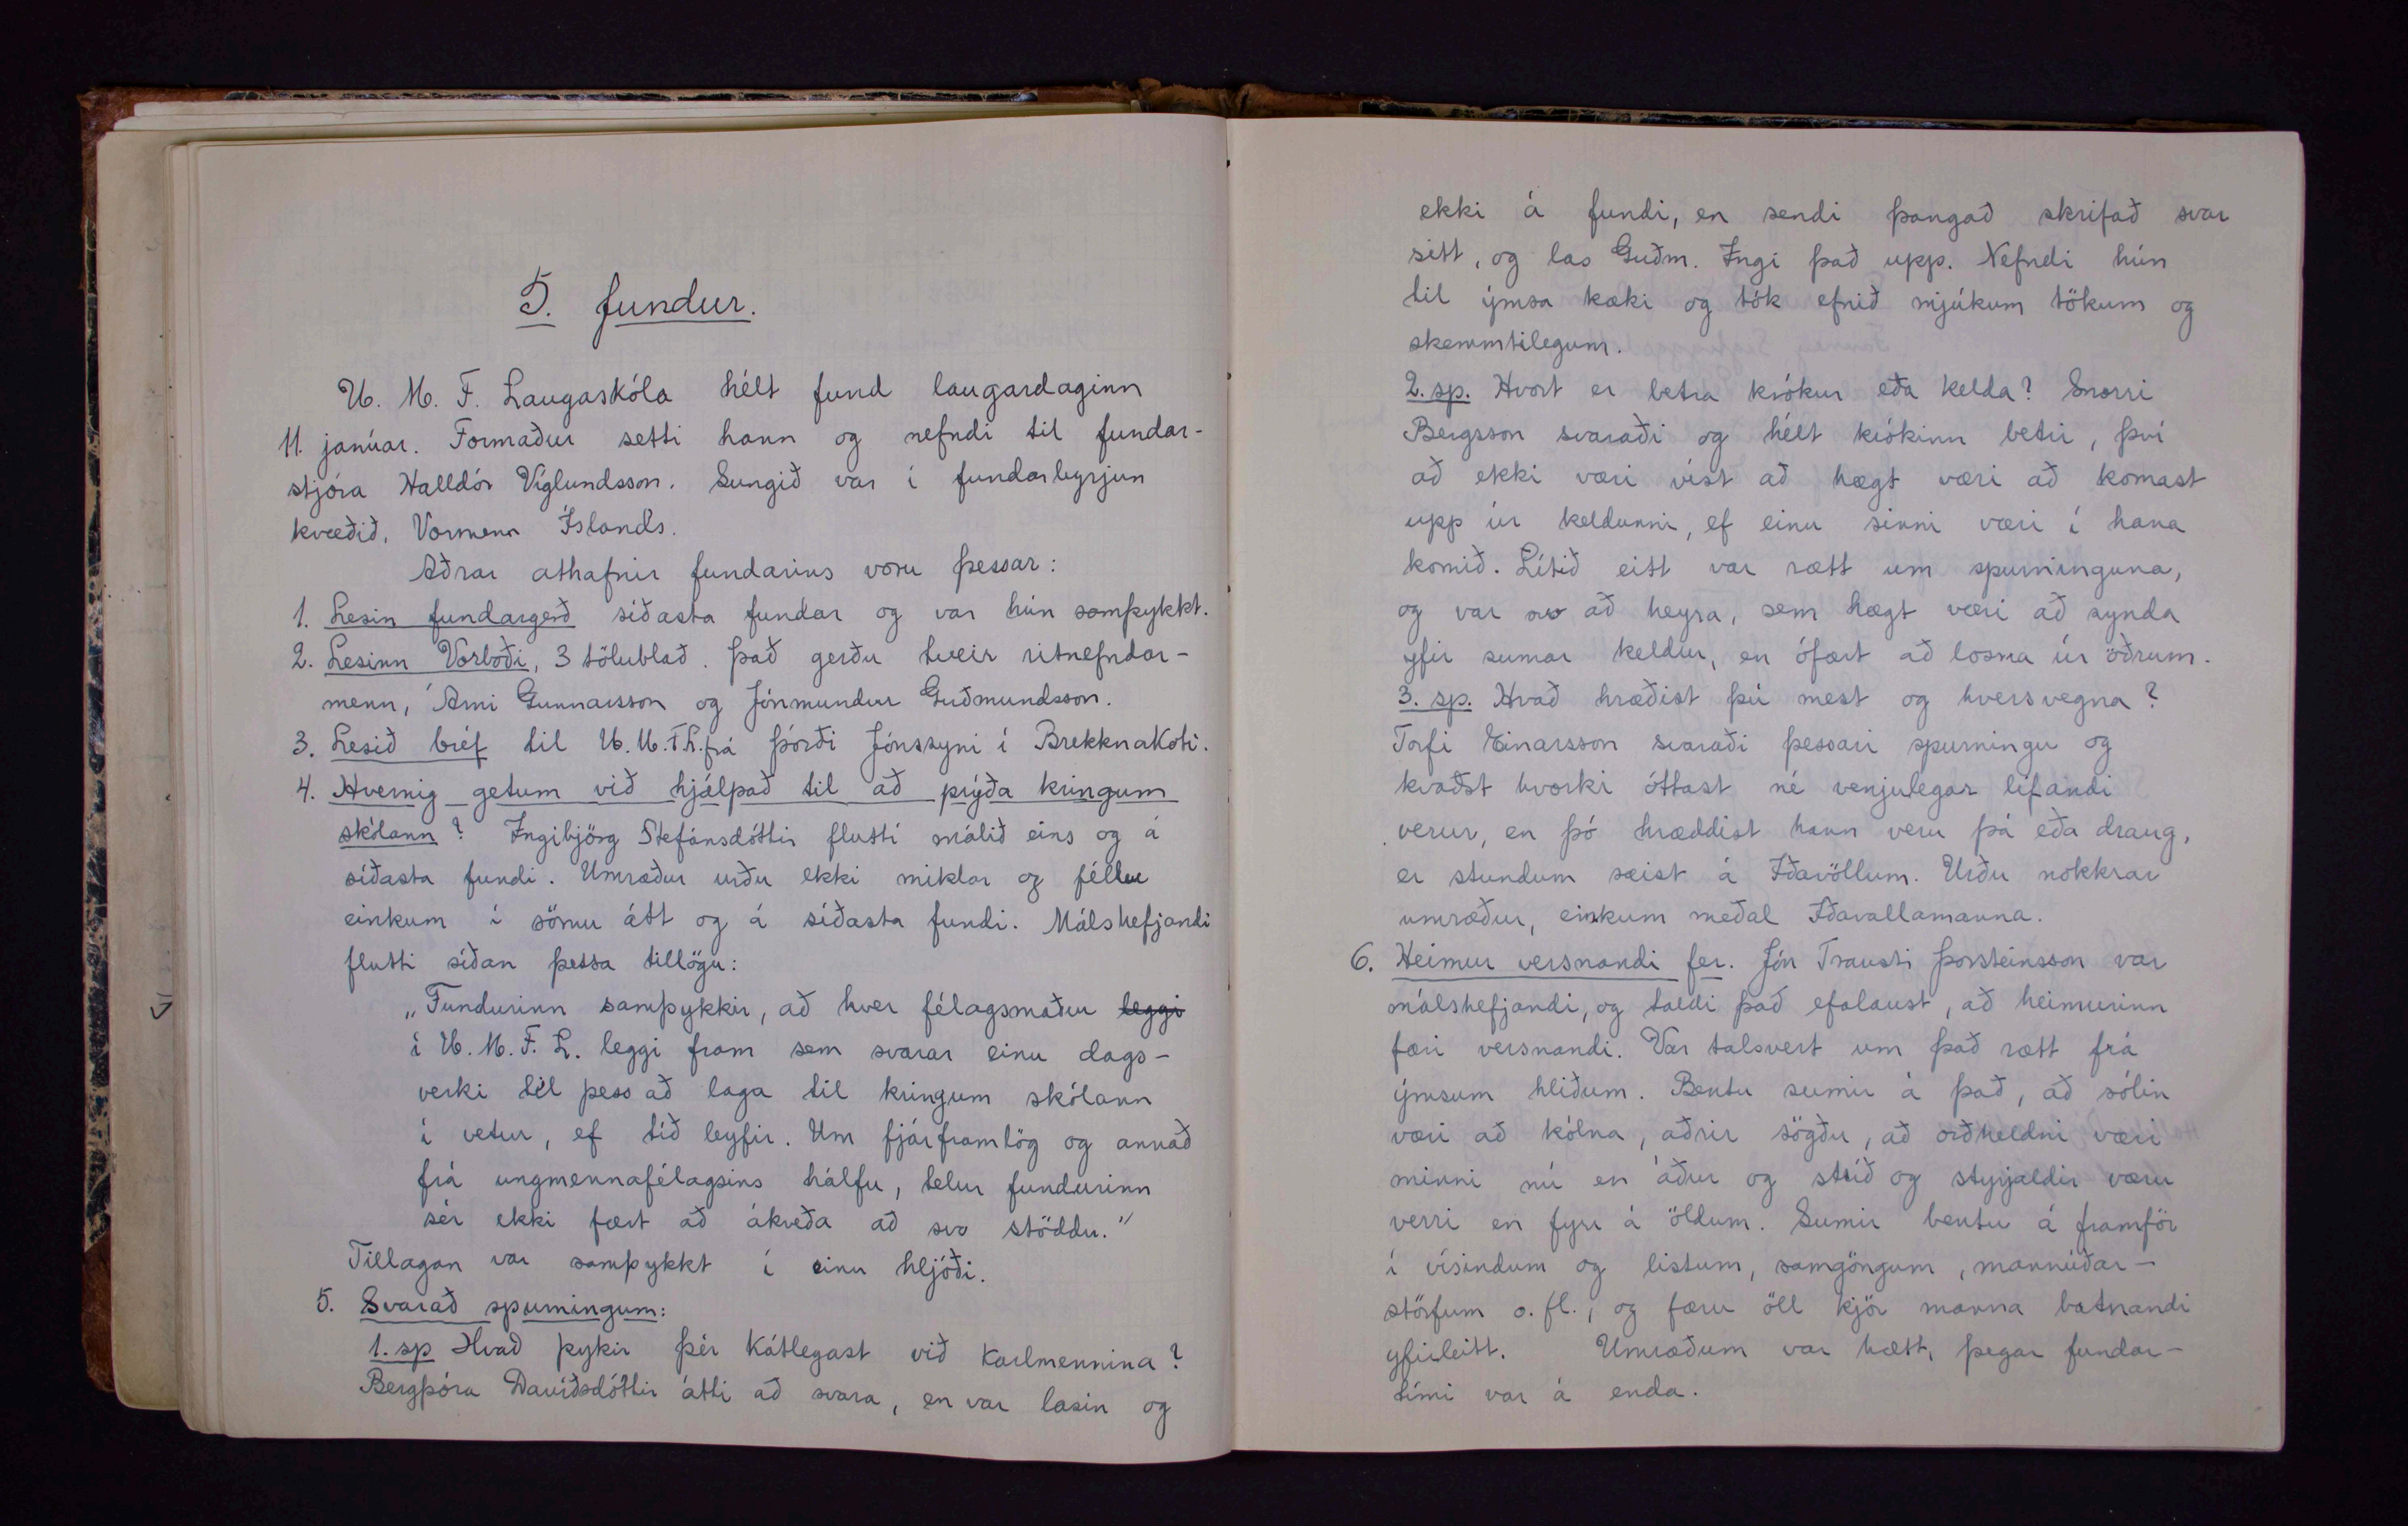 5. fundur.
U. M. F. Laugaskóla hélt fund laugardaginn
11. janúar. Formaður setti hann og nefndi til fundar-
stjóra Halldór Víglundsson. Sungið var í fundarbyrjun
kvæðið, Vormenn Íslands.
Aðrar athafnir fundarins voru þessar:
1. Lesin fundargerð síðasta fundar og var hún samþykkt.
2. Lesinn Vorboði, 3 tölublað. Það gerðu tveir ritnefndar-
menn, Árni Gunnarsson og Jónmundur Guðmundsson.
3. Lesið bréf til U.M.F.L. frá Þórði Jónssyni í Brekknakoti.
4. Hvernig getum við hjálpað til að prýða kringum
skólann? Ingibjörg Stefánsdóttir flutti málið eins og á
síðasta fundi. Umræður urðu ekki miklar og féllu
einkum í sömu átt og á síðasta fundi. Málshefjandi
flutti síðan þessa tillögu:
„Fundurinn samþykkir, að hver félagsmaður leggi
í U. M. F. L. leggi fram sem svarar einu dags-
verki til þess að laga til kringum skólann
í vetur, ef tíð leyfir. Um fjárframlög og annað
frá ungmennafélagsins hálfu, telur fundurinn
sér ekki fært að ákveða að svo stöddu."
Tillagan var samþykkt í einu hljóði.
5. Svarað spurningum:
1. sp Hvað þykir þér kátlegast við karlmennina?
Bergþóra Davíðsdóttir átti að svara, en var lasin og
ekki á fundi, en sendi þangað skrifað svar
sitt, og las Guðm. Ingi það upp. Nefndi hún
til ýmsa kæki og tók efnið mjúkum tökum og
skemmtilegum.
2. sp. Hvort er betra krókur eða kelda? Snorri
Bergsson svaraði og hélt krókinn betri, því
að ekki væri víst að hægt væri að komast
upp úr keldunni, ef einu sinni væri í hana
komið. Lítið eitt var rætt um spurninguna,
og var svo að heyra, sem hægt væri að synda
yfir sumar keldur, en ófært að losna úr öðrum.
3. sp. Hvað hræðist þú mest og hversvegna?
Torfi Einarsson svaraði þessari spurningu og
kvaðst hvorki óttast né venjulegar lifandi
verur, en þó hræddist hann veru þá eða draug,
er stundum sæist á Iðavöllum. Urðu nokkrar
umræður, einkum meðal Iðavallamanna.
6. Heimur versnandi fer. Jón Trausti Þorsteinsson var
málshefjandi, og taldi það efalaust, að heimurinn
færi versnandi. Var talsvert um það rætt frá
ýmsum hliðum. Bentu sumir á það, að sólin
væri að kólna, aðrir sögðu, að orðheldni væri
minni nú en áður og stríð og styrjaldir væru
verri en fyrr á öldum. Sumir bentu á framför
í vísindum og listum, samgöngum, mannúðar-
störfum o. fl., og færu öll kjör manna batnandi
yfirleitt. Umræðum var hætt, þegar fundar-
tími var á enda.